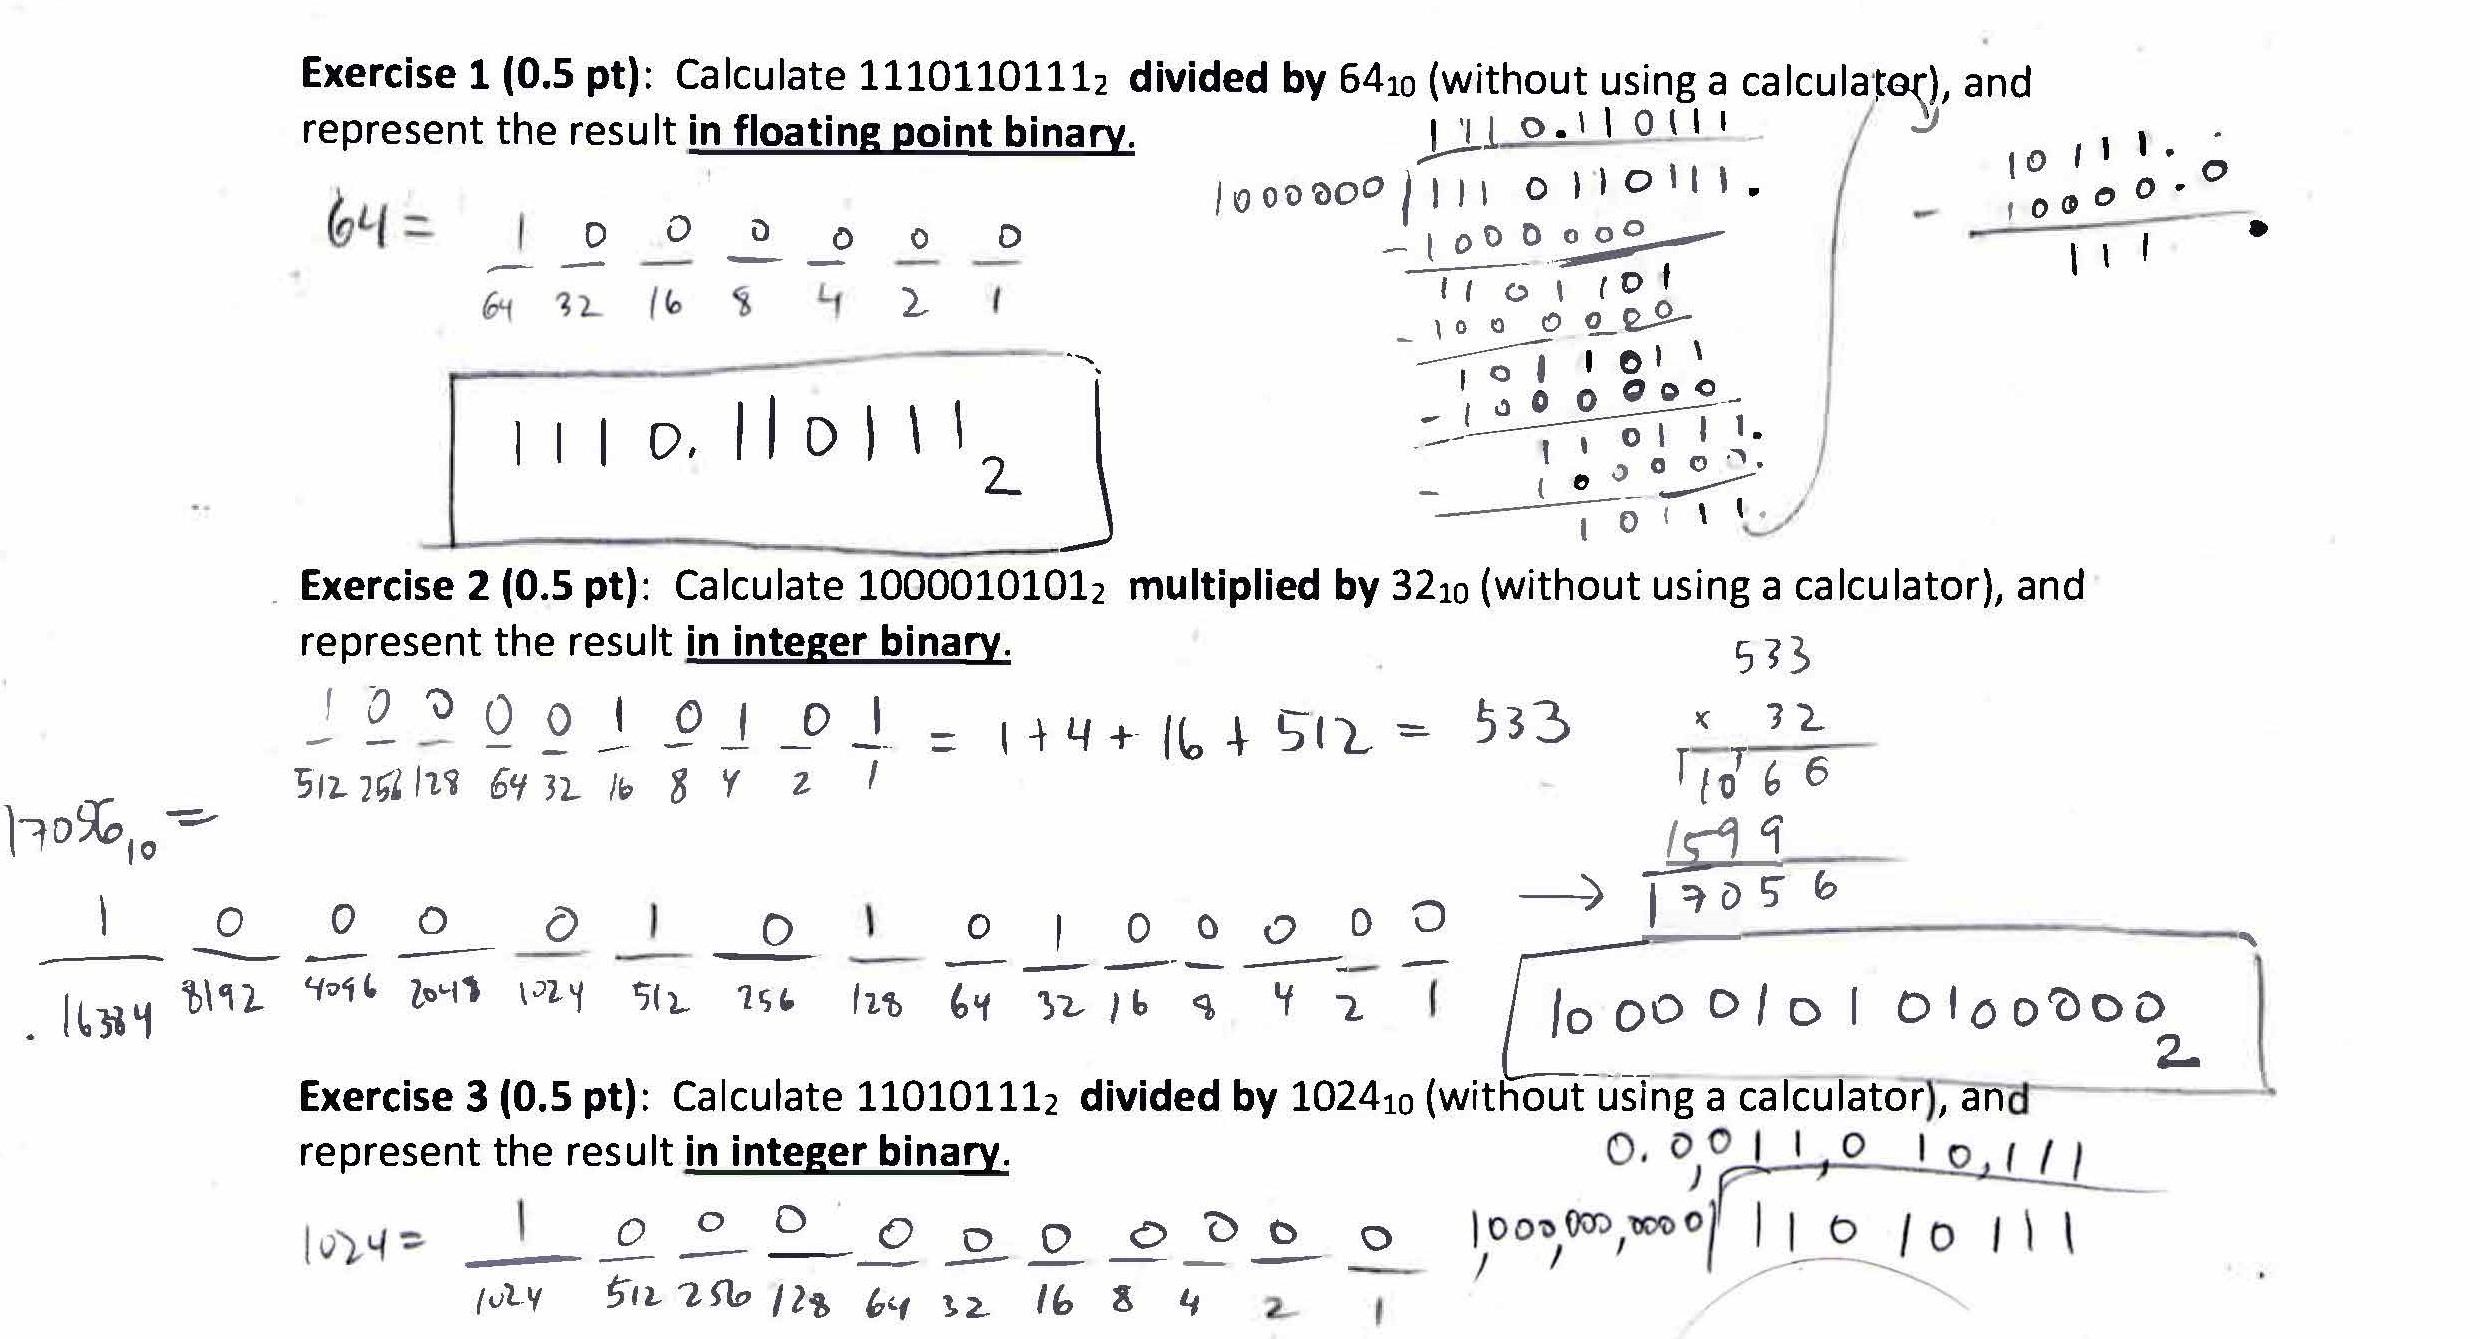 Exercise 1 (0.5 pt): Calculate 1110110111₂ divided by 64₁₀ (without using a calculator), and
represent the result in floating point binary.
64 = 1 0 0 0 0 0 0
64 32 16 8 4 2 1
1110.110111₂
1110.110111
1000000 1110110111.
- 1000000
1101101
- 1000000
1011011
- 1000000
110111.
- 100000.
10111.
10111.
- 10000.0
111.
Exercise 2 (0.5 pt): Calculate 1000010101₂ multiplied by 32₁₀ (without using a calculator), and
represent the result in integer binary.
1 0 0 0 0 1 0 1 0 1 = 1 + 4 + 16 + 512 = 533
512 256 128 64 32 16 8 4 2 1
533
x 32
1066
1599
→ 17056
17056₁₀ =
1 0 0 0 0 1 0 1 0 1 0 0 0 0 0
16384 8192 4096 2048 1024 512 256 128 64 32 16 8 4 2 1
100001010100000₂
Exercise 3 (0.5 pt): Calculate 11010111₂ divided by 1024₁₀ (without using a calculator), and
represent the result in integer binary.
0.0,011,010,111
1,000,000,0000 11010111
1024 = 1 0 0 0 0 0 0 0 0 0 0
1024 512 256 128 64 32 16 8 4 2 1